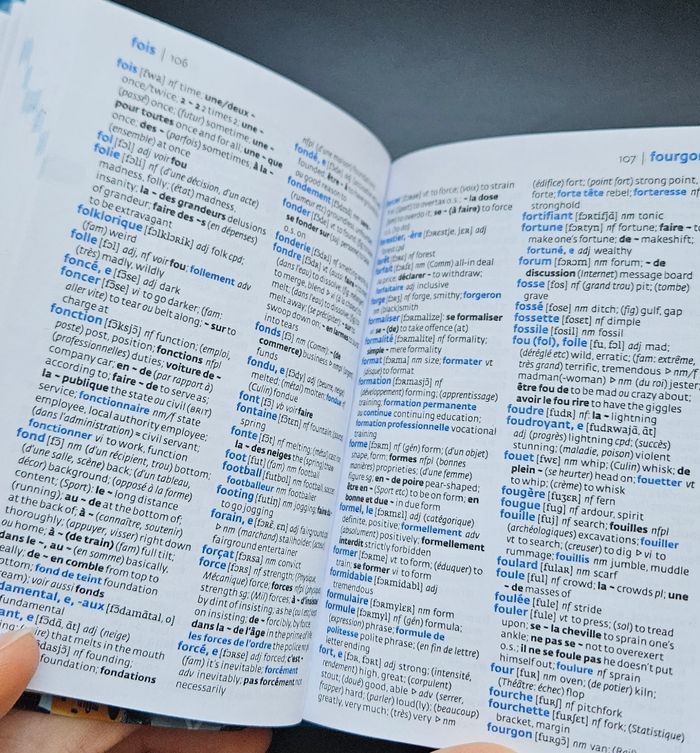 fois | 106
fois [fwa] nf time; une/deux ~
once/twice; 2 ~ 2 2 times 2; une ~
(passé) once; (futur) sometime; une ~
pour toutes once and for all; une ~ que
once; des ~ (parfois) sometimes; à la ~
(ensemble) at once
fol [fɔl] adj voir fou
folie [fɔli] nf (d'une décision, d'un acte)
madness, folly; (état) madness,
insanity; la ~ des grandeurs delusions
of grandeur; faire des ~s (en dépenses)
to be extravagant
folklorique [fɔlklɔrik] adj folk cpd;
(fam) weird
folle [fɔl] adj, nf voir fou; follement adv
(très) madly, wildly
foncé, e [fɔ̃se] adj dark
foncer [fɔ̃se] vi to go darker; (fam:
aller vite) to tear ou belt along; ~ sur to
charge at
fonction [fɔ̃ksjɔ̃] nf function; (emploi,
poste) post, position; fonctions nfpl
(professionnelles) duties; voiture de ~
company car; en ~ de (par rapport à)
according to; faire ~ de to serve as;
la ~ publique the state ou civil (BRIT)
service; fonctionnaire nm/f state
employee, local authority employee;
(dans l'administration) ≈ civil servant;
fonctionner vi to work, function
fond [fɔ̃] nm (d'un récipient, trou) bottom;
(d'une salle, scène) back; (d'un tableau,
décor) background; (opposé à la forme)
content; (Sport): le ~ long distance
(running); au ~ de at the bottom of;
at the back of; à ~ (connaître, soutenir)
thoroughly; (appuyer, visser) right down
ou home; à ~ (de train) (fam) full tilt;
dans le ~, au ~ (en somme) basically,
really; de ~ en comble from top to
bottom; fond de teint foundation
cream); voir aussi fonds
damental, e, -aux [fɔ̃damɑ̃tal, o]
fundamental
ant, e [fɔ̃dɑ̃, ɑ̃t] adj (neige)
that melts in the mouth
nf founding;
foundation; fondations
nfpl
fondé, e
founded;
ou good reason to
fondement
fonder
se fonder sur
o.s. on
fonderie
fondre
to merge, blend
melt away; (se précipiter) ~ sur to
swoop down on; ~ en larmes to burst
into tears
fonds [fɔ̃] nm (Comm) ~ (de
commerce) business
funds
fondu, e [fɔ̃dy] adj (beurre, neige)
melted; (métal) molten; fondue nf
(Culin) fondue
font [fɔ̃] vb voir faire
fontaine [fɔ̃tɛn] nf fountain
spring
fonte [fɔ̃t] nf melting; (métal) cast iron;
la ~ des neiges the (spring) thaw
foot [fut] (fam) nm football
football [futbol] nm football, soccer;
footballeur nm footballer
footing [futiŋ] nm jogging; faire du ~
to go jogging
forain, e [fɔrɛ̃, ɛn] adj fairground
▷ nm (marchand) stallholder;
fairground entertainer
forçat [fɔrsa] nm convict
force [fɔrs] nf strength; (Physique,
Mécanique) force; forces nfpl
strength sg; (Mil) forces; à ~ d'insister
by dint of insisting; as he (ou I etc) kept
on insisting; de ~ forcibly, by force;
dans la ~ de l'âge in the prime of life;
les forces de l'ordre the police
forcé, e [fɔrse] adj forced; c'est ~
(fam) it's inevitable; forcément
adv inevitably; pas forcément not
necessarily
vt to force; (voix) to strain
to overtax o.s.; ~ la dose
to overdo it; se ~ (à faire) to force
-ère [fɔrɛstje, jɛr] adj
forest cpd
forêt [fɔrɛ] nf forest
forfait [fɔrfɛ] nm (Comm) all-in deal
price; déclarer ~ to withdraw;
forfaitaire adj inclusive
forge [fɔrʒ] nf forge, smithy; forgeron
nm (black)smith
formaliser [fɔrmalize]: se formaliser
se ~ (de) to take offence (at)
formalité [fɔrmalite] nf formality;
simple ~ mere formality
format [fɔrma] nm size; formater vt
(disque) to format
formation [fɔrmasjɔ̃] nf
(développement) forming; (apprentissage)
training; formation permanente
ou continue continuing education;
formation professionnelle vocational
training
forme [fɔrm] nf (gén) form; (d'un objet)
shape, form; formes nfpl (bonnes
manières) proprieties; (d'une femme)
figure sg; en ~ de poire pear-shaped;
être en ~ (Sport etc) to be on form; en
bonne et due ~ in due form
formel, le [fɔrmɛl] adj (catégorique)
definite, positive; formellement adv
(absolument) positively; formellement
interdit strictly forbidden
former [fɔrme] vt to form; (éduquer) to
train; se former vi to form
formidable [fɔrmidabl] adj
tremendous
formulaire [fɔrmylɛr] nm form
formule [fɔrmyl] nf (gén) formula;
(expression) phrase; formule de
politesse polite phrase; (en fin de lettre)
letter ending
fort, e [fɔr, fɔrt] adj strong; (intensité,
rendement) high, great; (corpulent)
stout; (doué) good, able ▷ adv (serrer,
frapper) hard; (parler) loud(ly); (beaucoup)
greatly, very much; (très) very ▷ nm
107 | fourgon
(édifice) fort; (point fort) strong point,
forte; forte tête rebel; forteresse nf
stronghold
fortifiant [fɔrtifjɑ̃] nm tonic
fortune [fɔrtyn] nf fortune; faire ~ to
make one's fortune; de ~ makeshift;
fortuné, e adj wealthy
forum [fɔrɔm] nm forum; ~ de
discussion (Internet) message board
fosse [fos] nf (grand trou) pit; (tombe)
grave
fossé [fose] nm ditch; (fig) gulf, gap
fossette [fosɛt] nf dimple
fossile [fosil] nm fossil
fou (fol), folle [fu, fɔl] adj mad;
(déréglé etc) wild, erratic; (fam: extrême,
très grand) terrific, tremendous ▷ nm/f
madman(-woman) ▷ nm (du roi) jester;
être fou de to be mad ou crazy about;
avoir le fou rire to have the giggles
foudre [fudr] nf: la ~ lightning
foudroyant, e [fudrwajɑ̃, ɑ̃t]
adj (progrès) lightning cpd; (succès)
stunning; (maladie, poison) violent
fouet [fwɛ] nm whip; (Culin) whisk; de
plein ~ (se heurter) head on; fouetter vt
to whip; (crème) to whisk
fougère [fuʒɛr] nf fern
fougue [fug] nf ardour, spirit
fouille [fuj] nf search; fouilles nfpl
(archéologiques) excavations; fouiller
vt to search; (creuser) to dig ▷ vi to
rummage; fouillis nm jumble, muddle
foulard [fular] nm scarf
foule [ful] nf crowd; la ~ crowds pl; une
~ de masses of
foulée [fule] nf stride
fouler [fule] vt to press; (sol) to tread
upon; se ~ la cheville to sprain one's
ankle; ne pas se ~ not to overexert
o.s.; il ne se foule pas he doesn't put
himself out; foulure nf sprain
four [fur] nm oven; (de potier) kiln;
(Théâtre: échec) flop
fourche [furʃ] nf pitchfork
fourchette [furʃɛt] nf fork; (Statistique)
bracket, margin
fourgon [furgɔ̃] nm van;